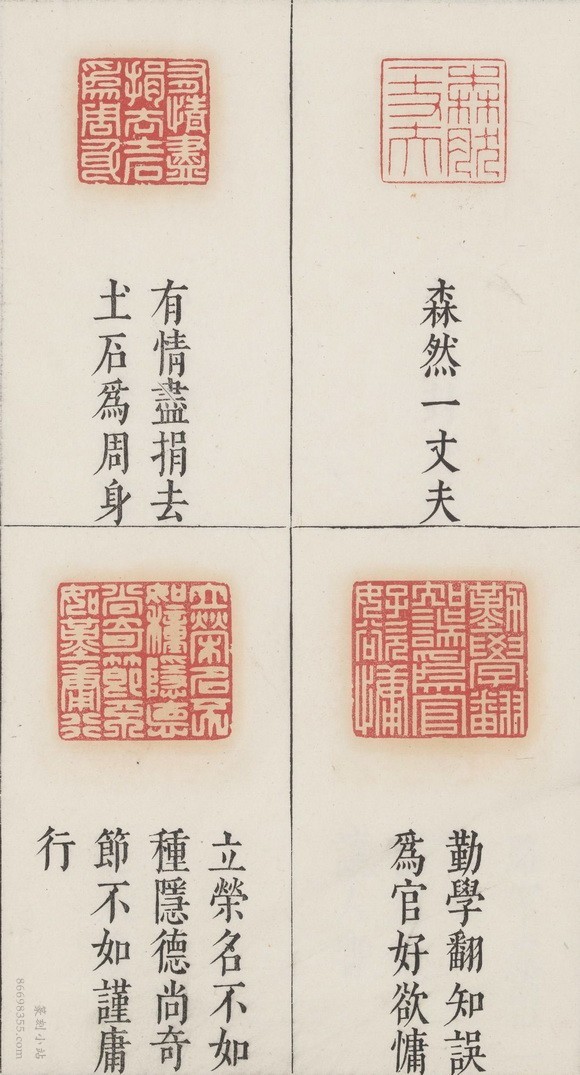 森然一丈夫
有情盡捐去
土石爲周身
勤學翻知誤
爲官好欲慵
立榮名不如
種隱德尚奇
節不如謹庸
行
篆刻小站
86698355.com